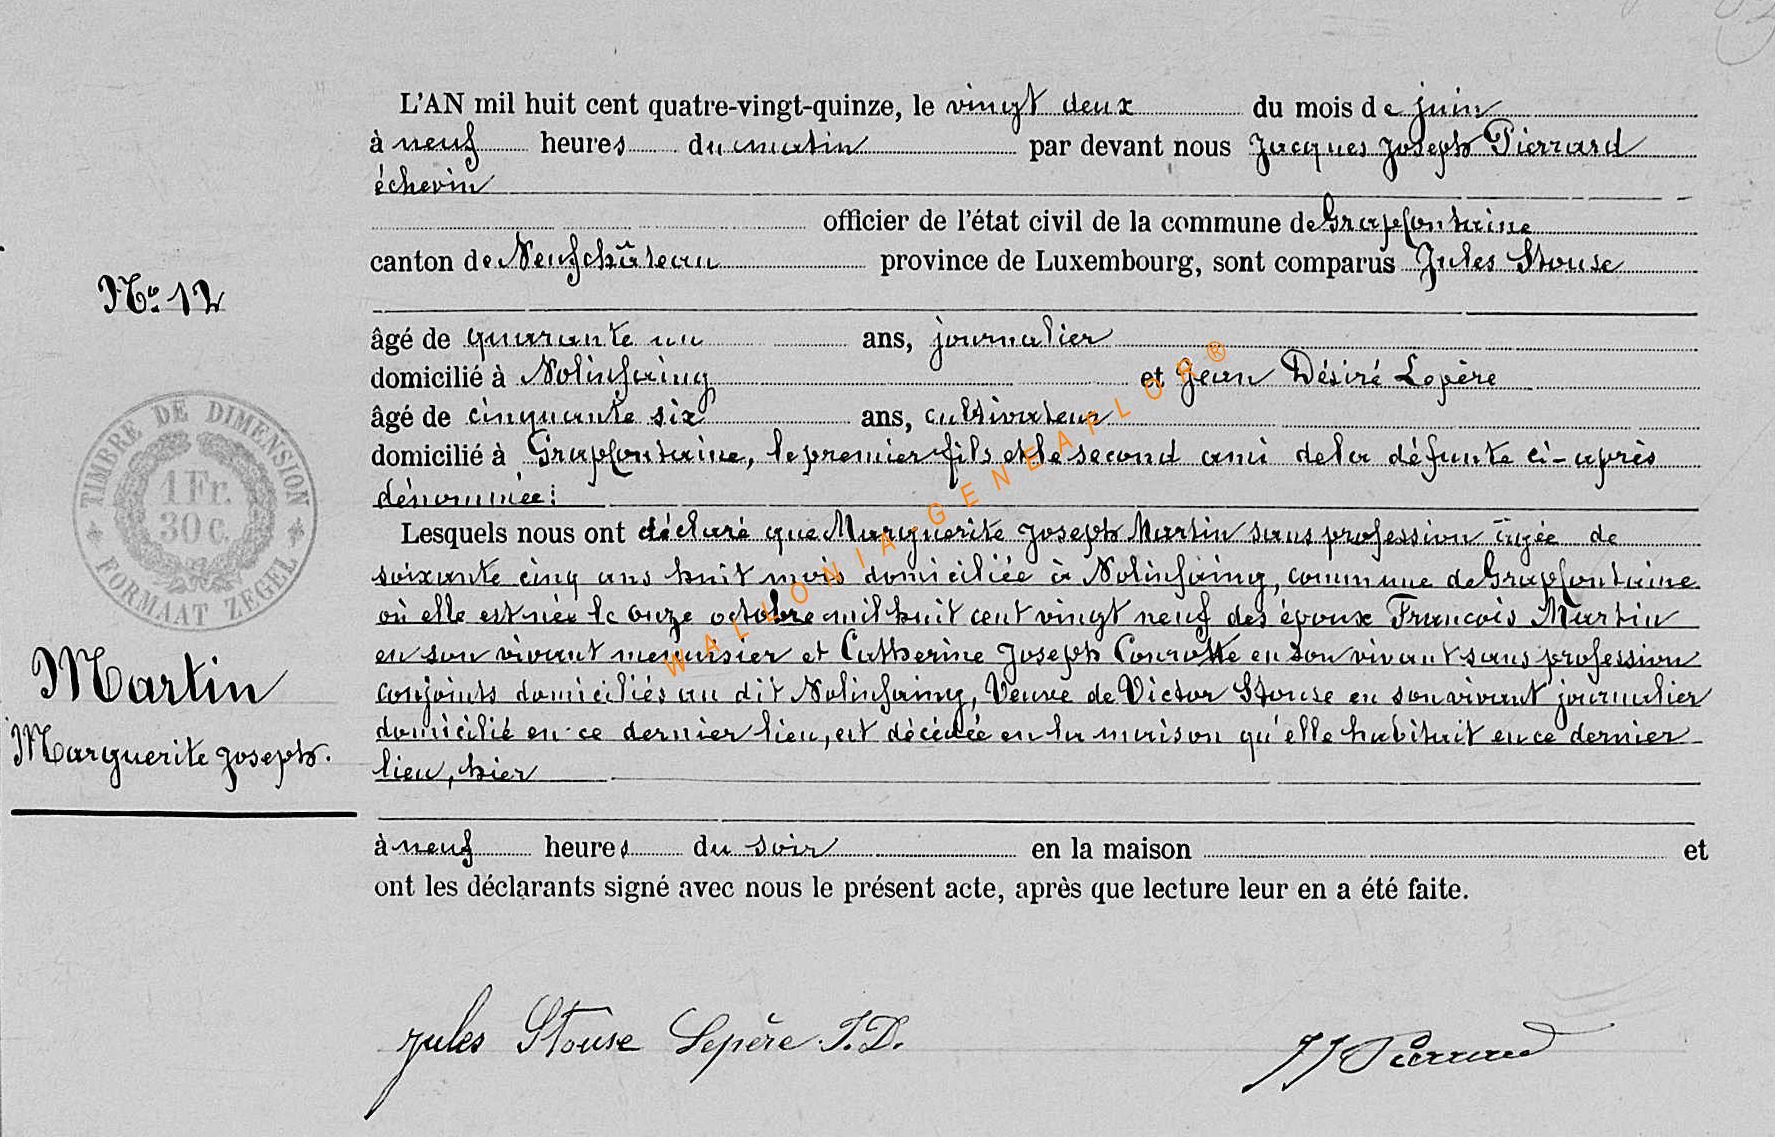 L'AN mil huit cent quatre-vingt-quinze, le vingt deux du mois de juin
à neuf heures du matin par devant nous Jacques Joseph Pierrard
échevin
officier de l'état civil de la commune de Grapfontaine
canton de Neufchâteau province de Luxembourg, sont comparus Jules Stouse
No. 12
âgé de quarante un ans, journalier
domicilié à Nolinfaing et Jean Désiré Lepère
âgé de cinquante six ans, cultivateur
domicilié à Grapfontaine, le premier fils et le second ami de la défunte ci-après
dénommée:
TIMBRE DE DIMENSION
1 Fr.
30 c.
FORMAAT ZEGEL
Lesquels nous ont déclaré que Marguerite Joseph Martin sans profession âgée de
soixante cinq ans huit mois domiciliée à Nolinfaing, commune de Grapfontaine
où elle est née le onze octobre mil huit cent vingt neuf des époux François Martin
en son vivant menuisier et Catherine Joseph Conrotte en son vivant sans profession
conjoints domiciliés au dit Nolinfaing, Veuve de Victor Stouse en son vivant journalier
domicilié en ce dernier lieu, est décédée en la maison qu'elle habitait en ce dernier
lieu, hier
Martin
Marguerite Joseph.
à neuf heures du soir en la maison et
ont les déclarants signé avec nous le présent acte, après que lecture leur en a été faite.
Jules Stouse Lepère J.D. JJ Pierrard
WALLONIA-GENEAFLOR®